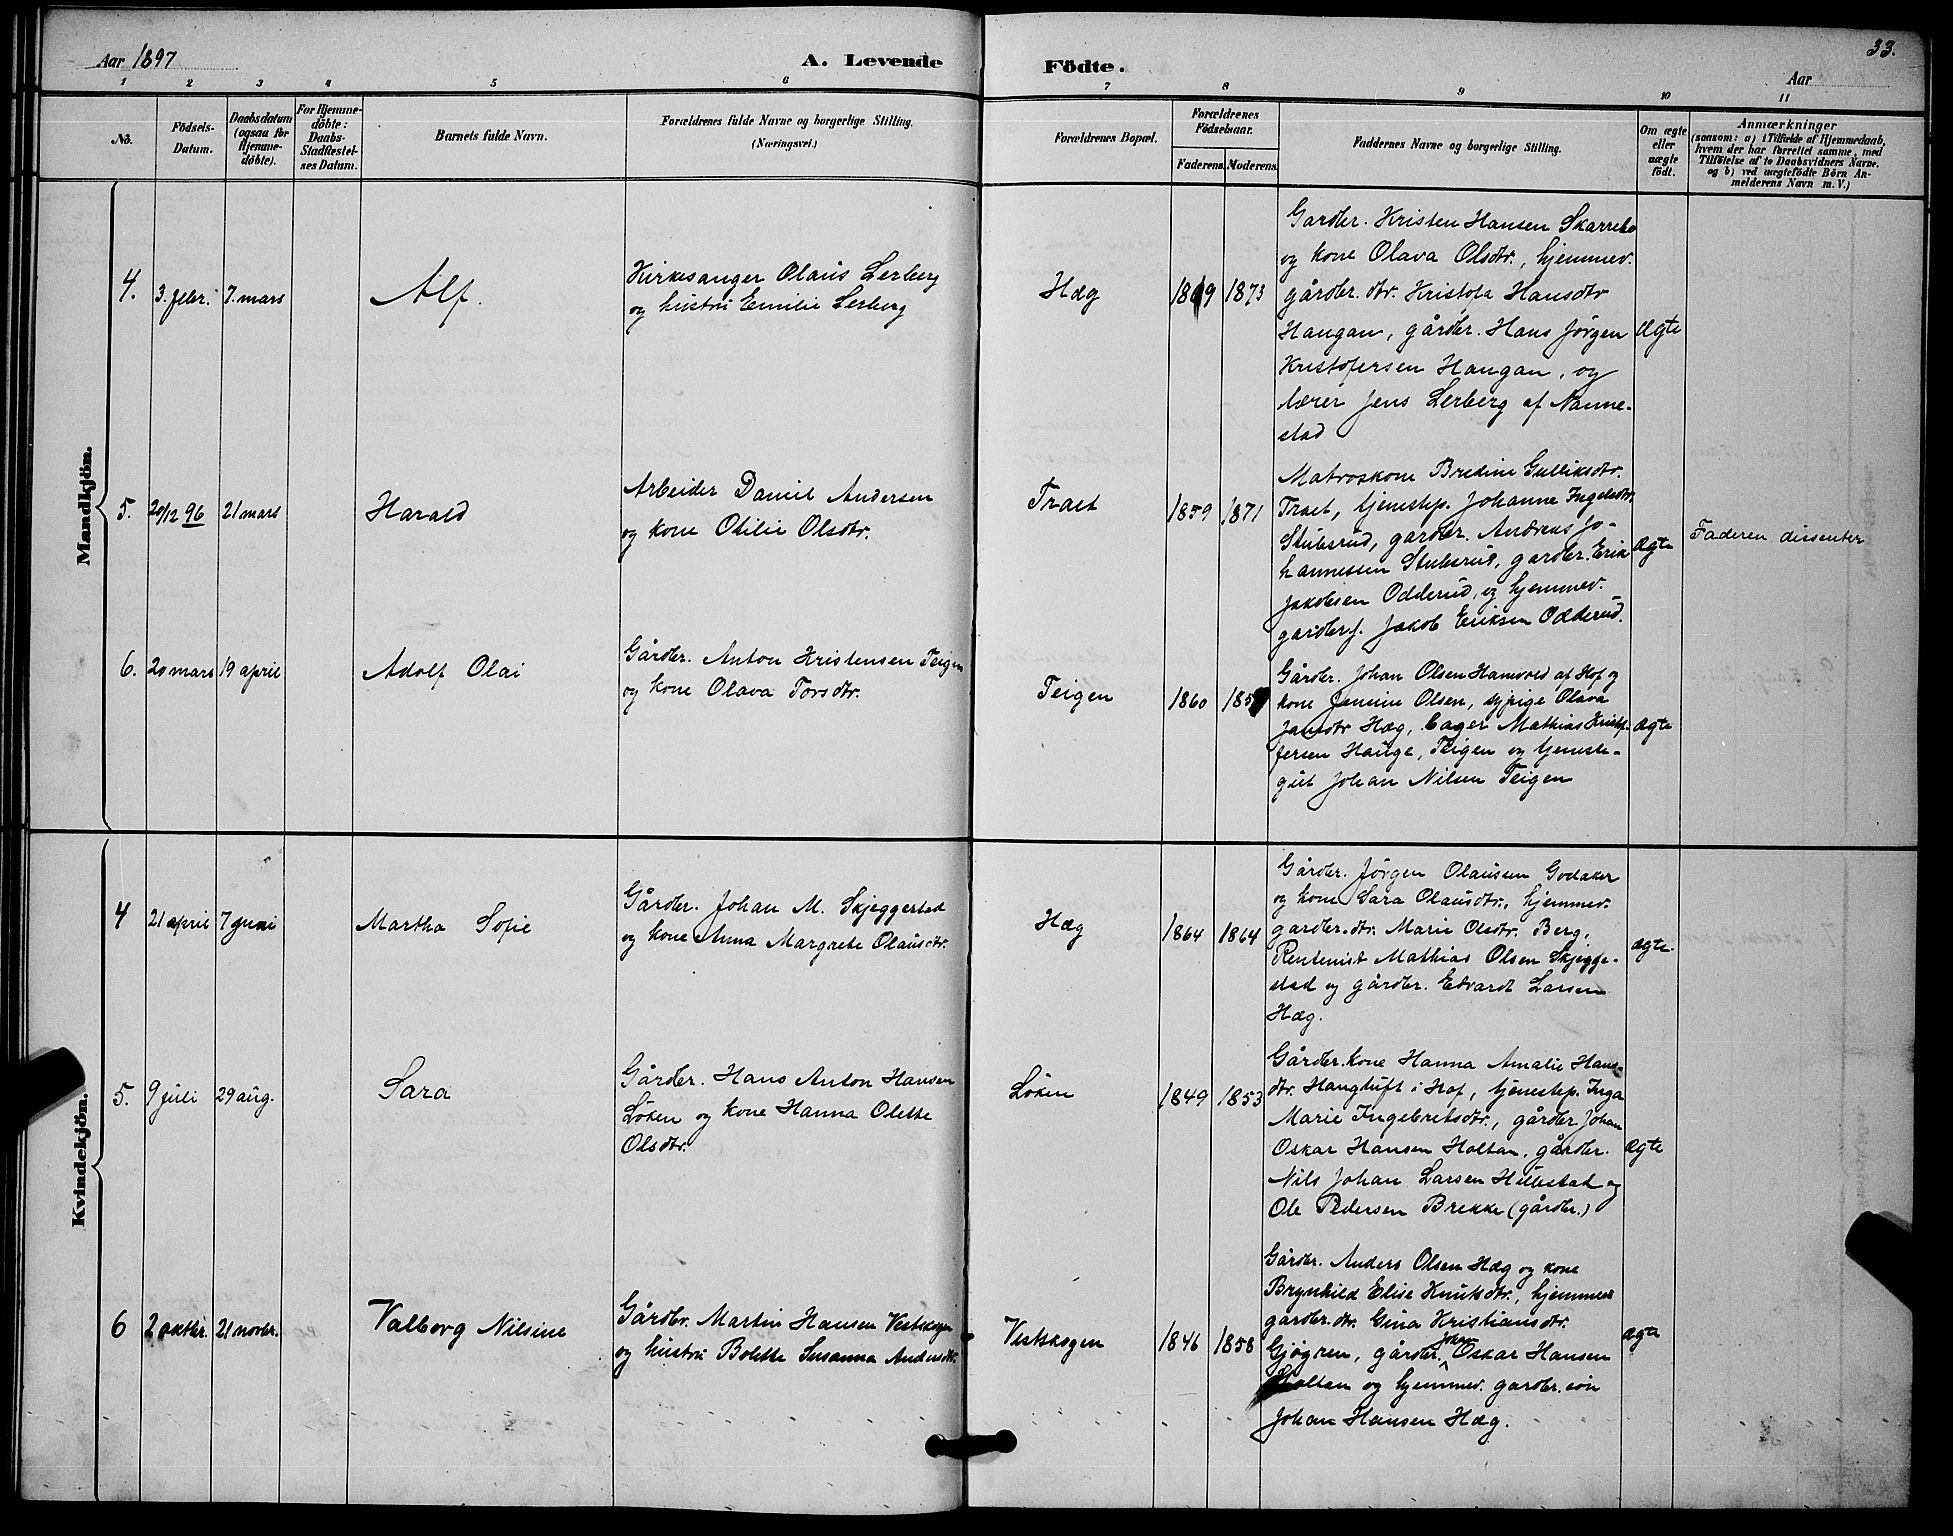 Aar 1897
A. Levende Födte.
33.
Aar
1 2 3 4 5 6 7 8 9 10 11
No.
Födsels-
Datum.
Daabsdatum
(ogsaa for
Hjemme-
döbte).
For Hjemme-
döbte:
Daabs-
Stadfæstel-
ses Datum.
Barnets fulde Navn.
Forældrenes fulde Navne og borgerlige Stilling.
(Næringsvei.)
Forældrenes Bopæl.
Forældrenes
Födselsaar.
Faderens. Moderens.
Faddernes Navne og borgerlige Stilling.
Om ægte
eller
uægte
født.
Anmærkninger
(saasom: a) i Tilfælde af Hjemmedaab,
hvem der har forrettet samme, med
Tilföielse af to Daabsvidners Navne,
og b) ved uægtefödte Börn An-
melderens Navn m. V.)
Mandkjön.
4.
3. febr.
7. mars
Alf.
Kirkesanger Olaus Lerberg
og hustru Emilie Lerberg
Hæg
1869
1873
Gardbr. Kristen Hansen Skarrebo
og kone Olava Olsdtr., hjemmev.
gårdbr. dtr. Kristofa Hansdtr
Haugan, gårdbr. Hans Jørgen
Kristofersen Haugan, og
lærer Jens Lerberg af Nanne-
stad
Ægte
5.
20/12 96
21 mars
Harald
Arbeider Daniel Andersen
og kone Otilie Olsdtr.
Traet
1859
1871
Matroskone Bredine Gulliksdtr.
Traet, tjenestep. Johanne Ingelsdtr.
Stubsrud, gardbr. Andreas Jo-
hannessen Stubsrud, gardbr. Erik
Jakobsen Odderud, og hjemmev.
gardbr.s. Jakob Eriksen Odderud.
Ægte
Faderen dissenter
6.
20 mars
19 april
Adolf Olai
Gårdbr. Anton Kristensen Teigen
og kone Olava Torsdtr.
Teigen
1860
185
Gårdbr. Johan Olsen Hanevold af Hof og
kone Jensine Olsen, sypige Olava
Jansdtr Hæg, bager Mathias Kristof-
fersen Hauge, Teigen og tjeneste-
gut Johan Nilsen Teigen
Ægte
Kvindekjön.
4
21 april
7 juni
Martha Sofie
Gårdbr. Johan M. Skjeggestad
og kone Anna Margrete Olausdtr.
Hæg
1864
1864
Gårdbr. Jørgen Olausen Godaker
og kone Sara Olausdtr., hjemmev.
gardbr. dtr. Marie Olsdtr. Berg,
Rentenist Mathias Olsen Skjegge-
stad og gårdbr. Edvardt Larsen
Hæg.
ægte.
5.
9 juli
29 aug.
Sara
Gårdbr. Hans Anton Hansen
Løken og kone Hanna Olette
Olsdtr.
Løken
1849
1853
Gårdbr. kone Hanna Amalie Hans-
dtr. Haugtuft i Hof, tjenestep. Inga
Marie Ingebretsdtr., gårdbr. Johan
Oskar Hansen Holtan, gårdbr.
Nils Johan Larsen Hillestad og
Ole Pedersen Brekke (gårdbr.)
Ægte
6
2 oktbr.
21 novbr.
Valborg Nilsine
Gårdbr. Martin Hansen Vestskogen
og hustru Bolette Susanna Andersdtr.
Vestskogen
1846
1858
Gårdbr. Anders Olsen Hæg og kone
Brynhild Elise Knutsdtr., hjemmev
gardbr. dtr. Gina Kristiansdtr.
Gjøgren, gårdbr. Johan Oskar Hansen
Holtan og hjemmev. gardbr. søn
Johan Hansen Hæg.
ægte